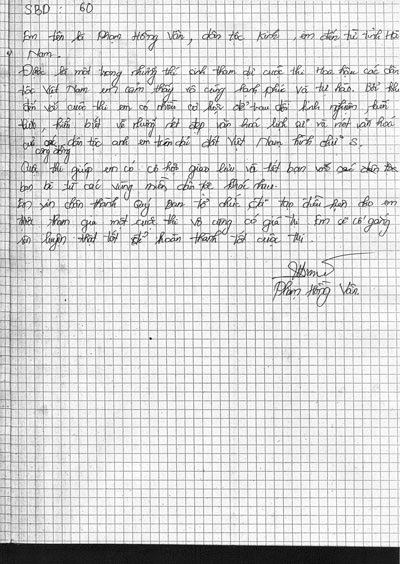 SBD : 60
Em tên là Phạm Hồng Vân, dân tộc Kinh, em đến từ tỉnh Hà
Nam.
Được là một trong những thí sinh tham dự cuộc thi Hoa hậu các dân
tộc Việt Nam em cảm thấy vô cùng hạnh phúc và tự hào. Bởi khi
đến với cuộc thi em có nhiều cơ hội để trau dồi kinh nghiệm kiến
thức, hiểu biết về những nét đẹp văn hoá lịch sử và nét văn hoá
của các dân tộc anh em trên dải đất Việt Nam hình chữ S.
cộng đồng
Cuộc thi giúp em có cơ hội giao lưu và kết bạn với các
bạn bè từ các vùng miền dân tộc khác nhau.
Em xin chân thành Quý Ban tổ chức đã tạo điều kiện cho em
được tham gia một cuộc thi vô cùng có giá trị. Em sẽ cố gắng
rèn luyện thật tốt để hoàn thành tốt cuộc thi.
Phạm Hồng Vân.